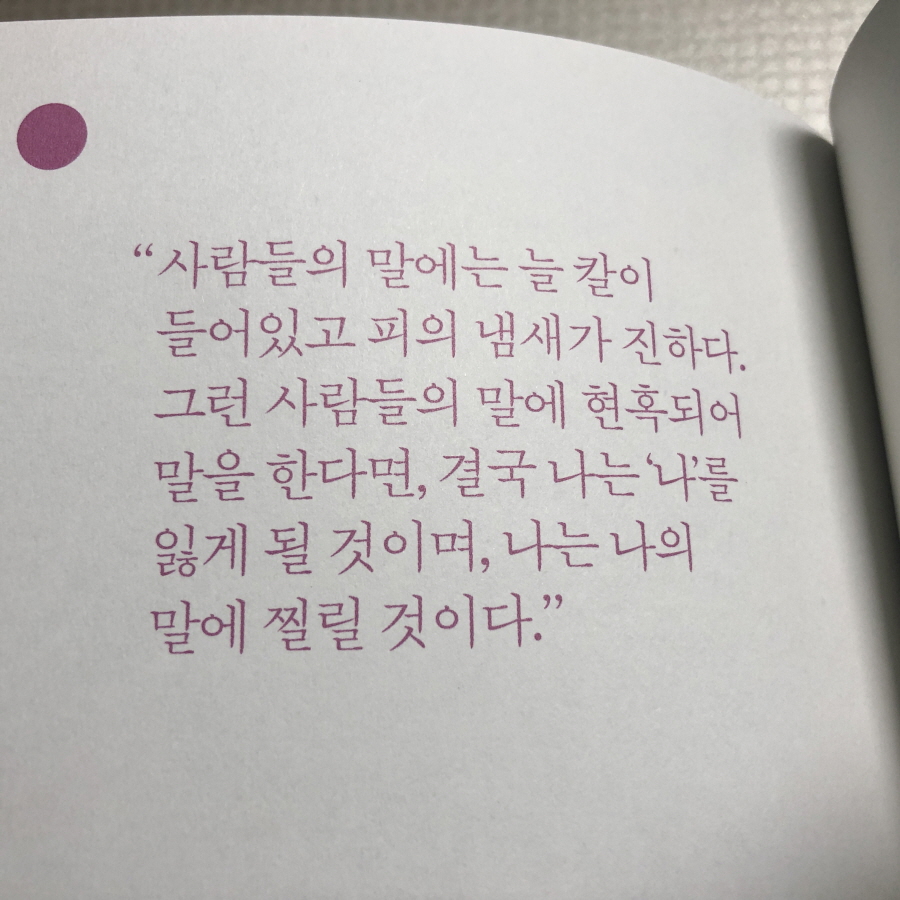 “사람들의 말에는 늘 칼이
들어있고 피의 냄새가 진하다.
그런 사람들의 말에 현혹되어
말을 한다면, 결국 나는 ‘나’를
잃게 될 것이며, 나는 나의
말에 찔릴 것이다.”